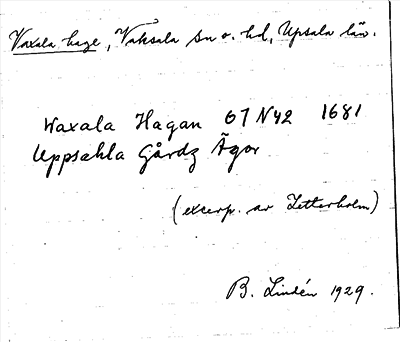 Vaxala hage, Vaksala sn o. hd, Upsala län.
Waxala Hagan 67 Ny2 1681
Uppsahla Gårdz Ägor
(excerp. av Zetterholm)
B. Lindén 1929.